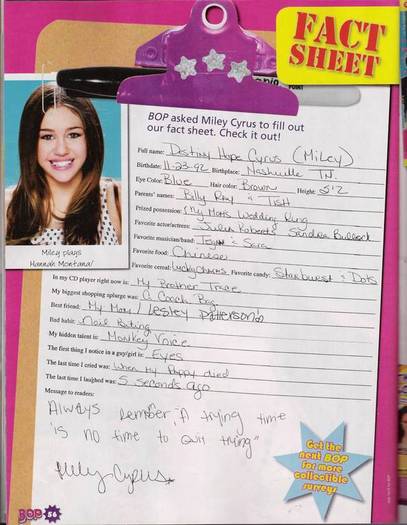 FACT
SHEET
BOP asked Miley Cyrus to fill out
our fact sheet. Check it out!
Full name: Destiny Hope Cyrus (Miley)
Birthdate: 11-23-92 Birthplace: Nashville TN.
Eye Color: Blue Hair color: Brown Height: 5'2
Parents' names: Billy Ray & Tish
Prized possession: My Mom's Wedding Ring
Favorite actor/actress: Julia Roberts Sandra Bullock
Favorite musician/band: Tegan & Sara
Favorite food: Chinese
Favorite cereal: Lucky Charms Favorite candy: Starburst & Dots
In my CD player right now is: My Brother Trace
My biggest shopping splurge was: a Coach Bag
Best friend: My Mom / Lesley Patterson
Bad habit: Nail Biting
My hidden talent is: Monkey Voice
The first thing I notice in a guy/girl is: Eyes
The last time I cried was: When My Pappy died
The last time I laughed was: 5 seconds ago
Message to readers:
Always rember, "A trying time
is no time to Quit trying"
Miley Cyrus
Miley plays
Hannah Montana!
Get the
next BOP
for more
collectible
surveys
BOP 56